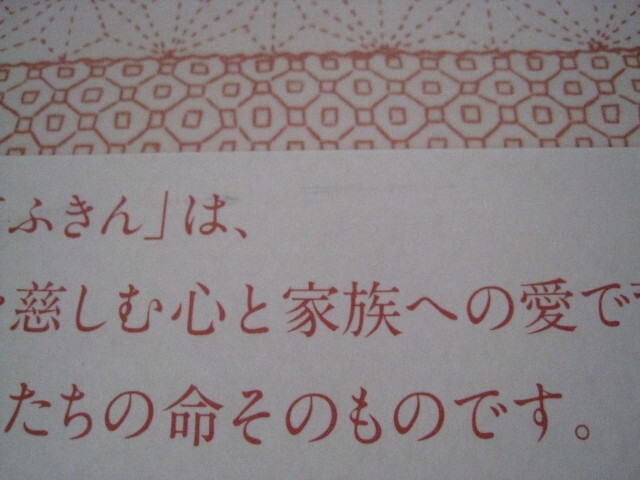 「ふきん」は、
慈しむ心と家族への愛で
たちの命そのものです。